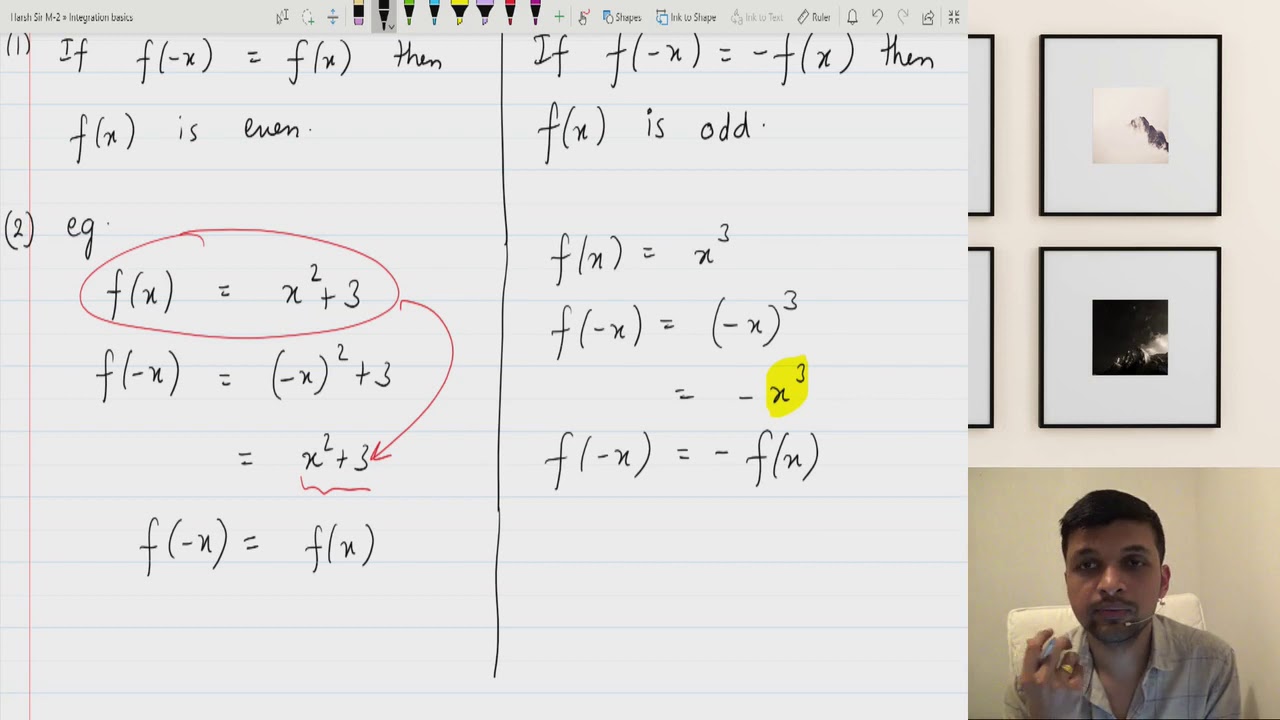 Harsh Sir M-2 » Integration basics
Shapes Ink to Shape Ink to Text Ruler
(1) If f(-x) = f(x) then
f(x) is even.
(2) eg.
f(x) = x² + 3
f(-x) = (-x)² + 3
= x² + 3
f(-x) = f(x)
If f(-x) = -f(x) then
f(x) is odd.
f(x) = x³
f(-x) = (-x)³
= - x³
f(-x) = - f(x)